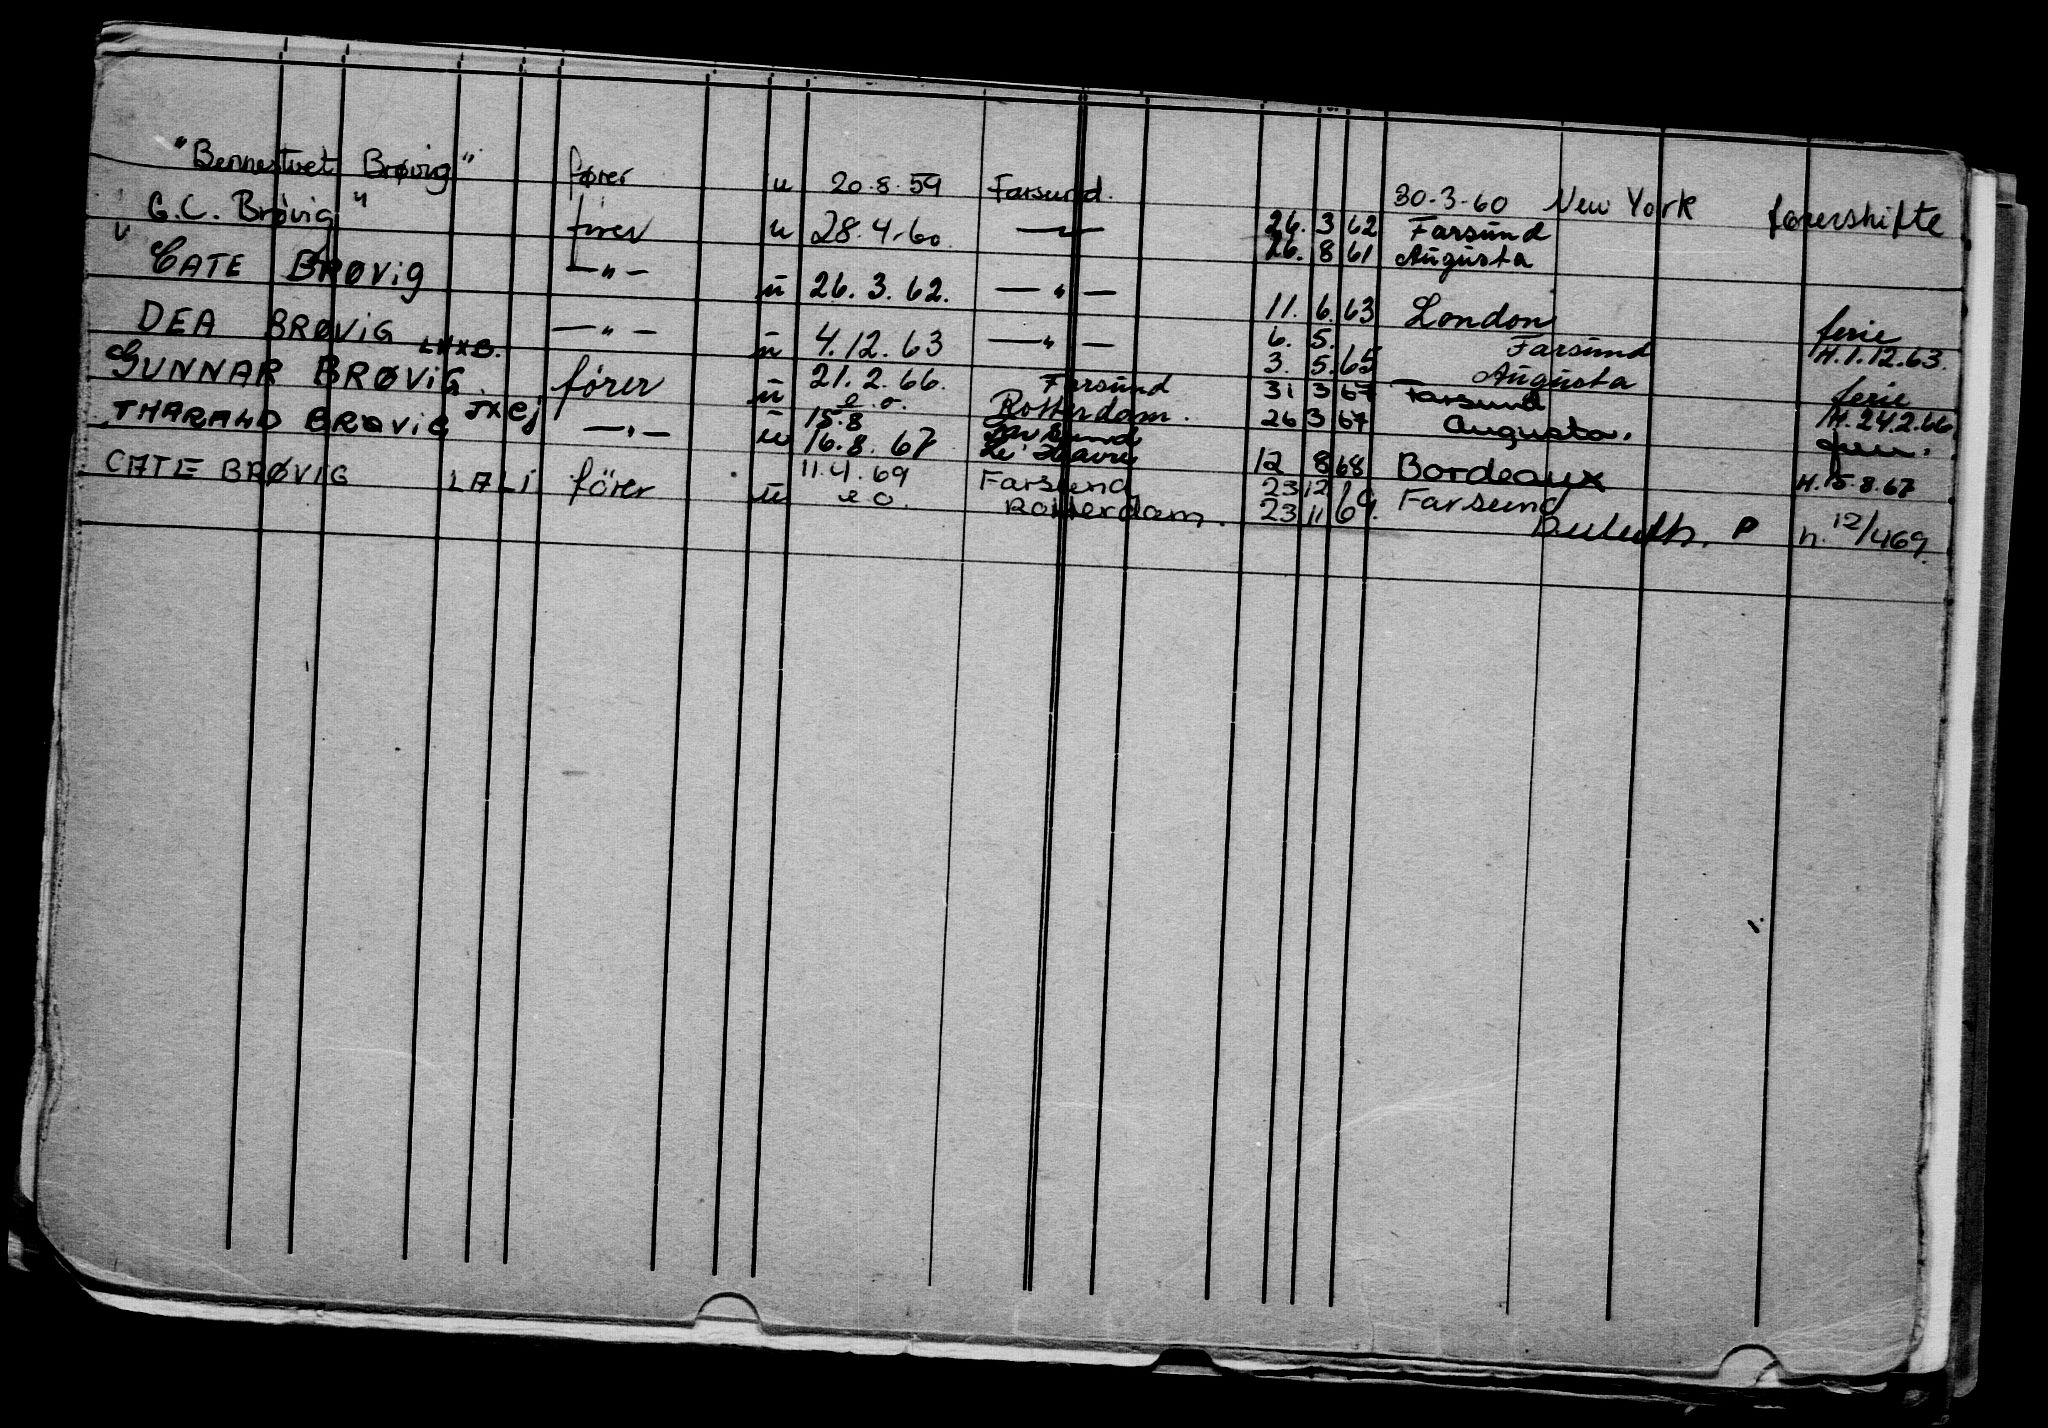 "Bennestvet Brøvig" fører u 20.8.59 Farsund. 30-3-60 New York førershifte
" G.C. Brøvig" fører u 28.4.60. —"— 26. 3 62 Farsund
26. 8 61 Augusta
" CATE BRØVIG —"— u 26. 3. 62. —"— 11. 6. 63 London ferie
DEA BRØVIG LHXB. —"— u 4.12.63 —"— 6. 5. Farsund H.1.12.63.
3. 5. 65 Augusta ferie
GUNNAR BRØVIG JXEJ fører u 21.2.66. Farsund 31 3 67 Farsund H.24.2.66
e.o. Rotterdam. 26 3 67 Augusta.
THARALD BRØVIG —"— u 15.8
16.8.67 Le Havre 12 8 68 Bordeaux H.15.8.67
CATE BRØVIG LALI fører u 11.4.69 Farsund 23 12 69. Farsund
e o. Rotterdam. 23 11 Duluth. P h. 12/469.